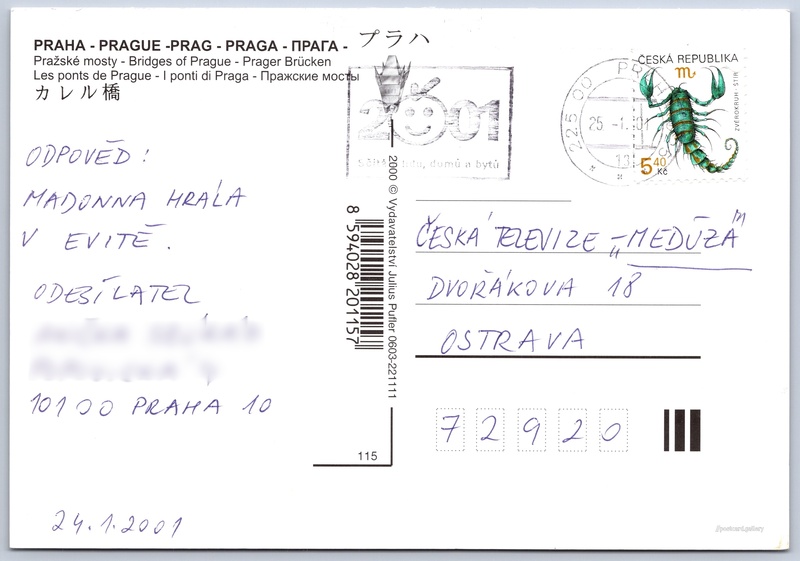 PRAHA - PRAGUE -PRAG - PRAGA - ПРАГА - プラハ
Pražské mosty - Bridges of Prague - Prager Brücken
Les ponts de Prague - I ponti di Praga - Пражские мосты
カレル橋
ODPOVĚD:
MADONNA HRÁLA
V EVITĚ.
ODESÍLATEL
101 00 PRAHA 10
24.1.2001
2001
domů a bytů
225 00 PRAHA
25 -1.01
ČESKÁ REPUBLIKA
ZVĚROKRUH - ŠTÍR
5,40
Kč
2000 © Vydavatelství Julius Pufler 0603-221111
8 594028 201157
115
ČESKÁ TELEVIZE „MEDÚZA"
DVOŘÁKOVA 18
OSTRAVA
7 2 9 2 0
//postcard.gallery